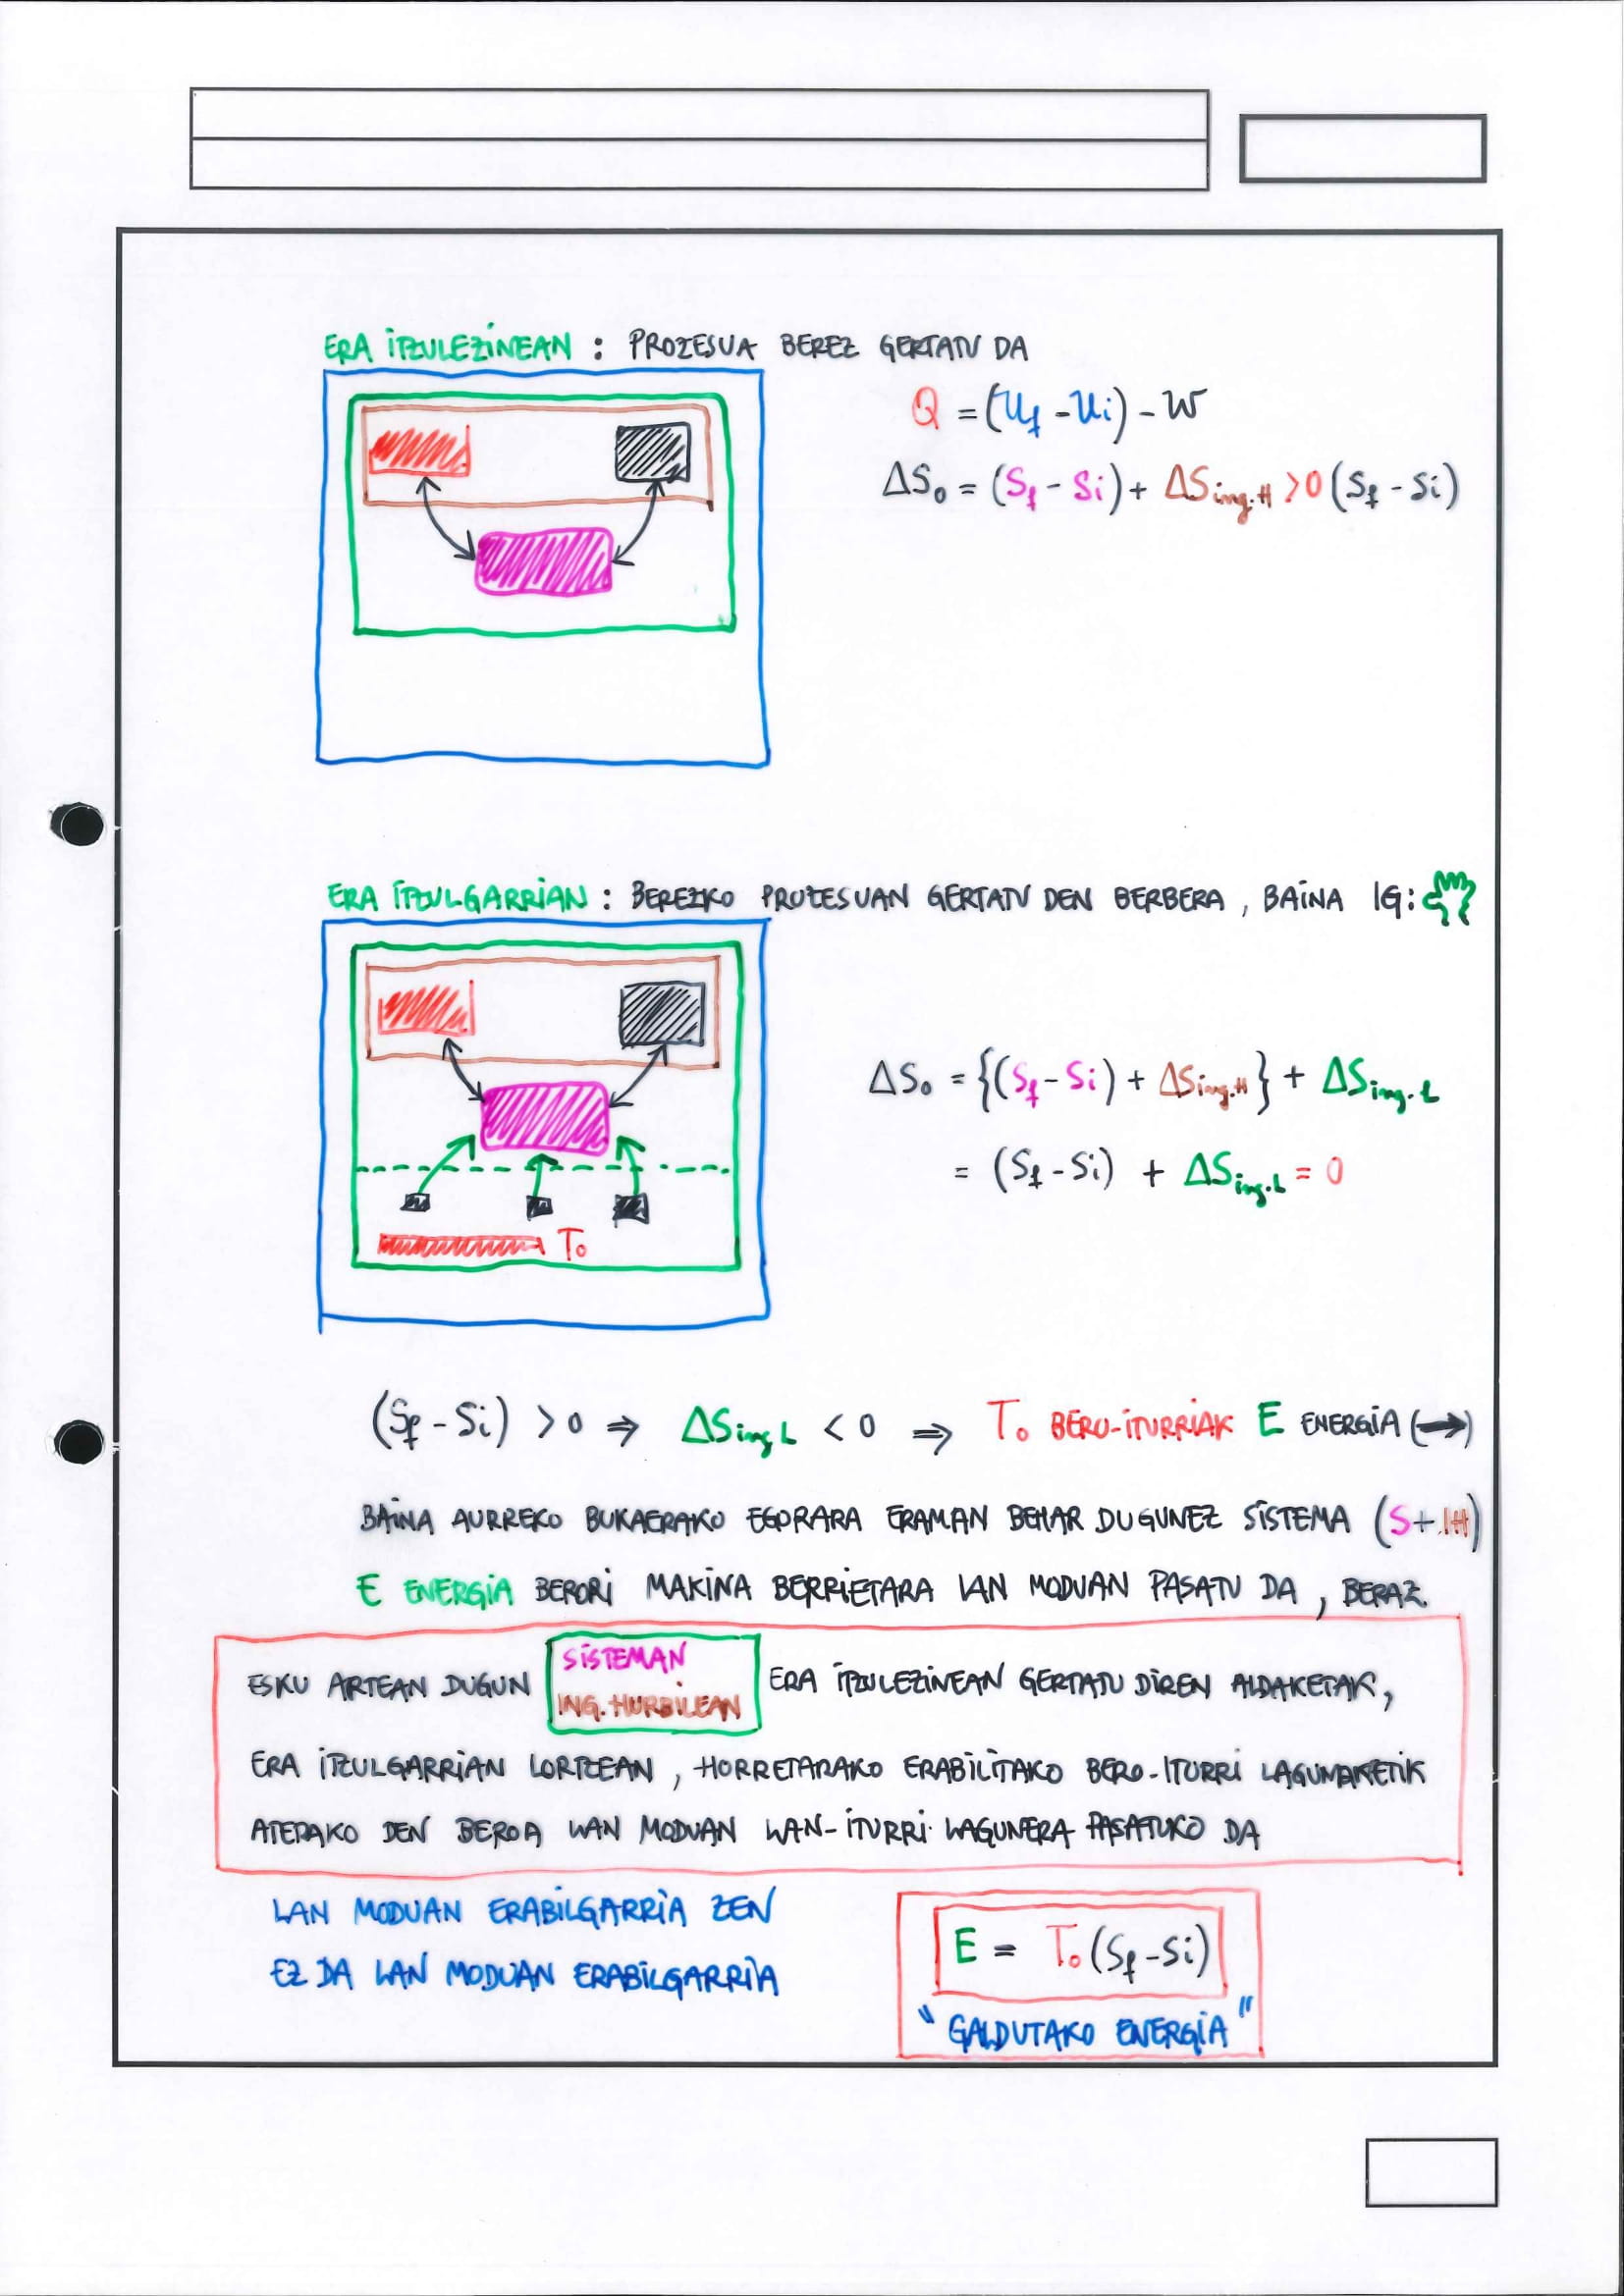 ERA ITZULEZINEAN : PROZESUA BEREZ GERTATU DA
Q = (Uf - Ui) - W
ΔS₀ = (Sf - Si) + ΔSing.H >0 (Sf - Si)
ERA ITZULGARRIAN : BEREZKO PROZESUAN GERTATU DEN BERBERA , BAINA IG:
ΔS₀ = {(Sf - Si) + ΔSing.H} + ΔSing.L
= (Sf - Si) + ΔSing.L = 0
T₀
(Sf - Si) > 0 ⇒ ΔSing L < 0 ⇒ T₀ BERO-ITURRIAK E ENERGIA (→)
BAINA AURREKO BUKAERAKO EGOERARA ERAMAN BEHAR DUGUNEZ SISTEMA (S + IH)
E ENERGIA BERORI MAKINA BERRIETARA LAN MODUAN PASATU DA , BERAZ
ESKU ARTEAN DUGUN SISTEMAN ING. HURBILEAN ERA ITZULEZINEAN GERTATU DIREN ALDAKETAK,
ERA ITZULGARRIAN LORTZEAN , HORRETARAKO ERABILITAKO BERO-ITURRI LAGUNAKETIK
ATERAKO DEN BEROA LAN MODUAN LAN-ITURRI LAGUNERA PASATUKO DA
LAN MODUAN ERABILGARRIA ZEN
EZ DA LAN MODUAN ERABILGARRIA
E = T₀ (Sf - Si)
"GALDUTAKO ENERGIA"